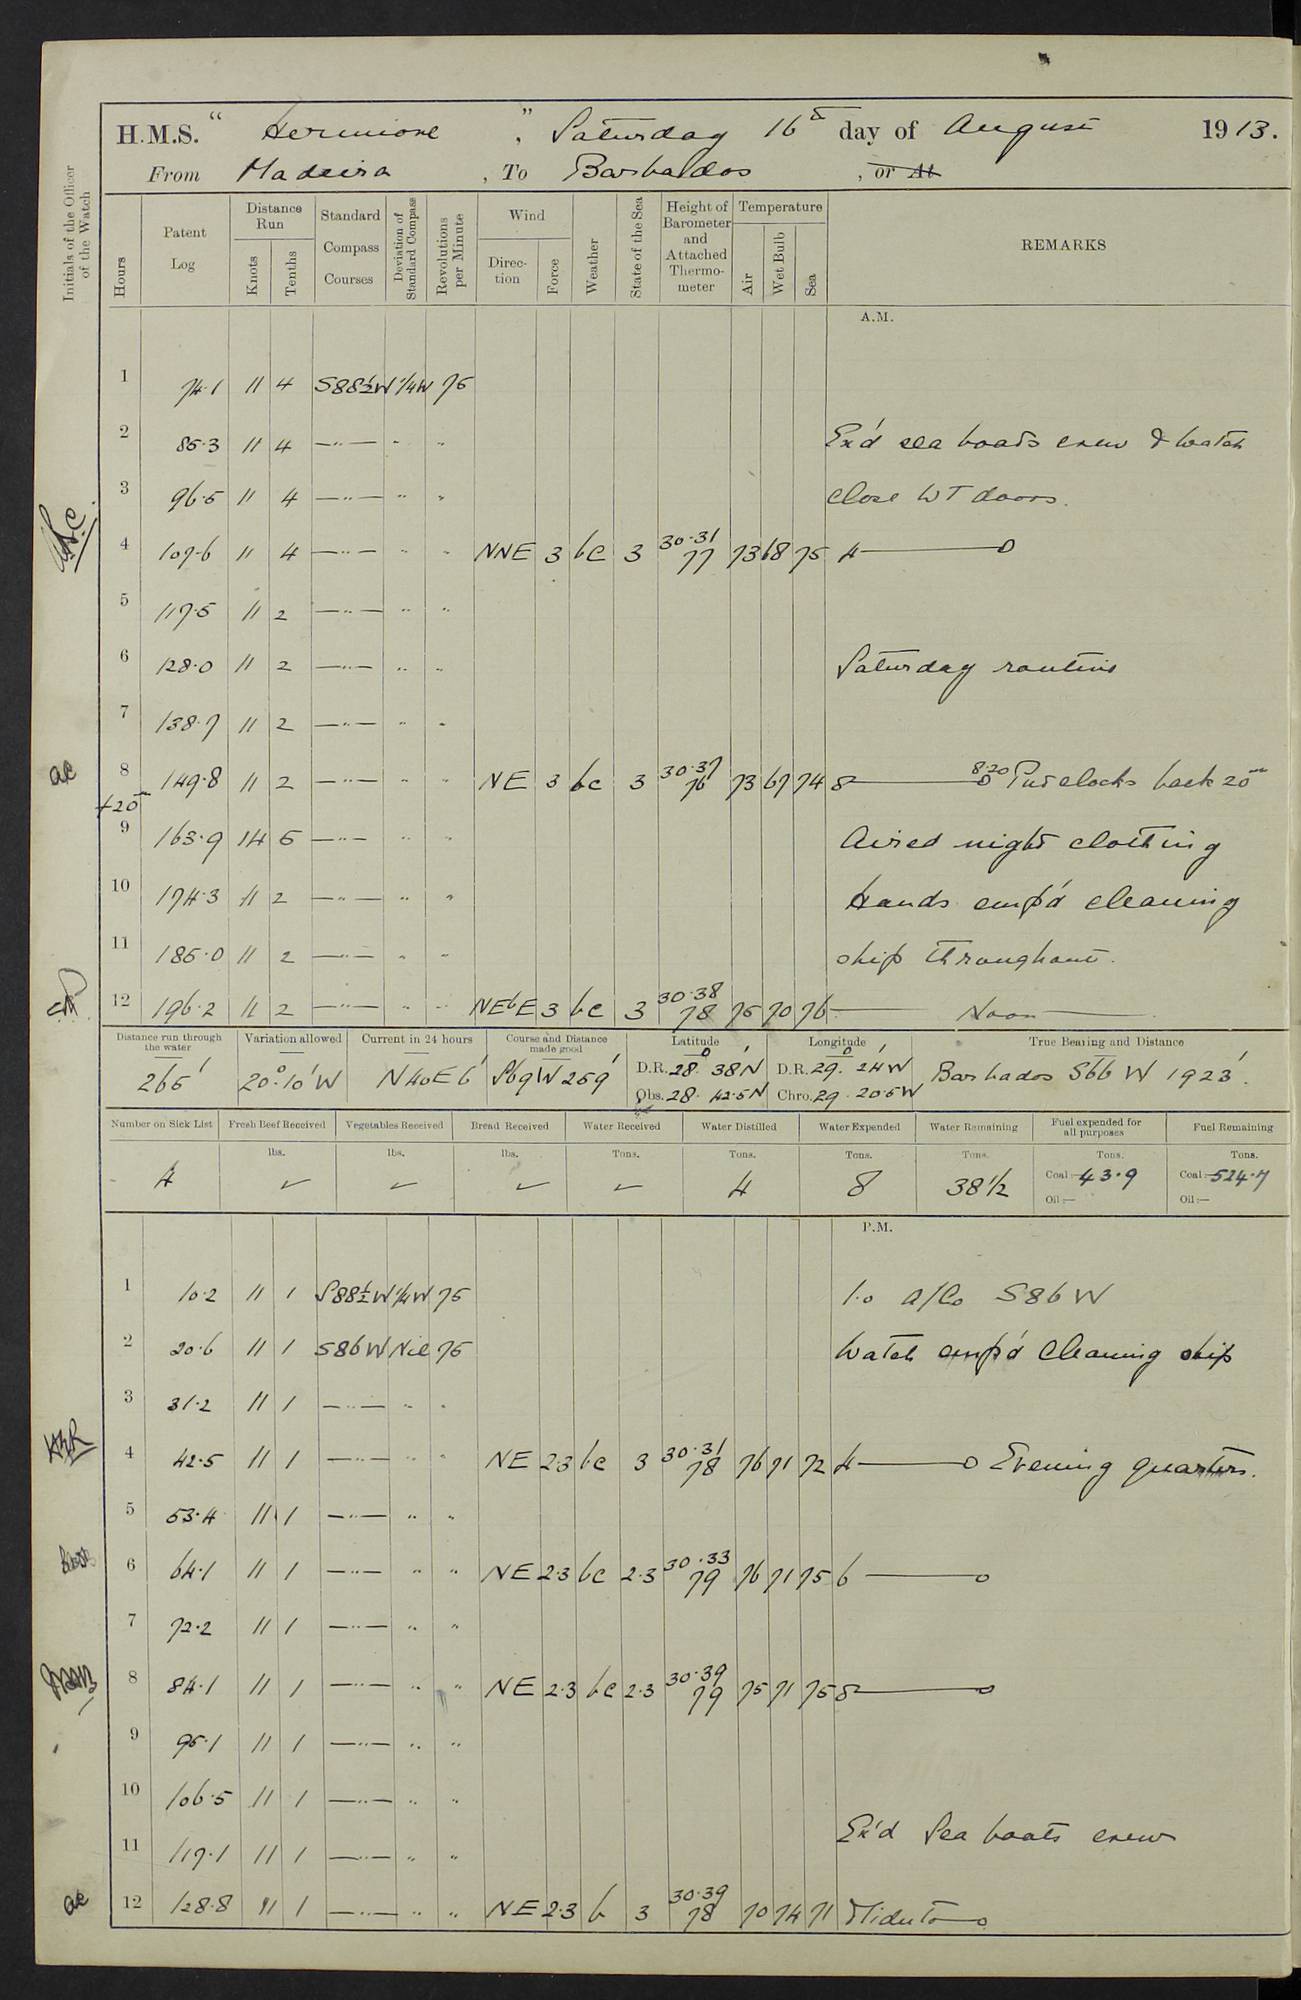 H.M.S. " Hermione ", Saturday 16th day of August 1913.
From Madeira, To Barbados, or At
Initials of the Officer of the Watch
Hours | Patent Log | Distance Run Knots Tenths | Standard Compass Courses | Deviation of Standard Compass | Revolutions per Minute | Wind Direction Force | Weather | State of the Sea | Height of Barometer and Attached Thermometer | Temperature Air Wet Bulb Sea | REMARKS
A.M.
1 74.1 11 4 S88½W ¼W 75
2 85.3 11 4 —"— " " Ex'd sea boats crew & watch
3 96.5 11 4 —"— " " close WT doors.
4 107.6 11 4 —"— " " NNE 3 bc 3 30.31 77 73 68 75 4———o
5 117.5 11 2 —"— " "
6 128.0 11 2 —"— " " Saturday routine
7 138.7 11 2 —"— " "
ac 8 149.8 11 2 —"— " " NE 3 bc 3 30.37 76 73 67 74 8———o 8.20 Put clocks back 20m
+20m
9 163.9 14 5 —"— " " Aired night clothing
10 174.3 11 2 —"— " " Hands emp'd cleaning
11 185.0 11 2 —"— " " ship throughout.
12 196.2 11 2 —"— " " NEbE 3 bc 3 30.38 78 75 70 76 ——— Noon ———
Distance run through the water | Variation allowed | Current in 24 hours | Course and Distance made good | Latitude | Longitude | True Bearing and Distance
265' | 20° 10' W | N40E 6' | S69W 259' | D.R. 28° 38' N | D.R. 29° 24' W | Barbados S66W 1923'.
Obs. 28 42.5 N | Chro. 29 20.5 W
Number on Sick List | Fresh Beef Received | Vegetables Received | Bread Received | Water Received | Water Distilled | Water Expended | Water Remaining | Fuel expended for all purposes | Fuel Remaining
lbs. | lbs. | lbs. | Tons. | Tons. | Tons. | Tons. | Tons. | Tons.
4 | ✓ | ✓ | ✓ | ✓ | 4 | 8 | 38½ | Coal:—43.9 | Coal:—524.7
Oil:— | Oil:—
P.M.
1 10.2 11 1 S88½W ¼W 75 1.0 a/Co S86W
2 20.6 11 1 S86W Nil 75 Watch emp'd cleaning ship
3 31.2 11 1 —"— " "
4 42.5 11 1 —"— " " NE 2.3 bc 3 30.31 78 76 71 72 4———o Evening quarters.
5 53.4 11 1 —"— " "
6 64.1 11 1 —"— " " NE 2.3 bc 2.3 30.33 79 76 71 75 6———o
7 72.2 11 1 —"— " "
8 84.1 11 1 —"— " " NE 2.3 bc 2.3 30.39 79 75 71 75 8———o
9 95.1 11 1 —"— " "
10 106.5 11 1 —"— " "
11 117.1 11 1 —"— " " Ex'd Sea boats crew
ac 12 128.8 11 1 —"— " " NE 2.3 b 3 30.39 78 70 74 71 Midnt———o